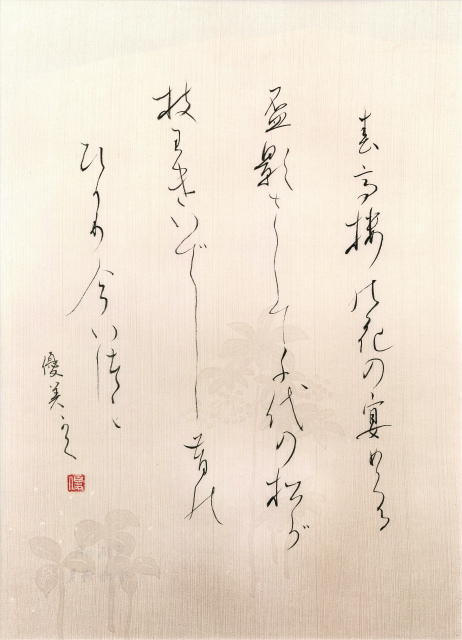 春高楼の花の宴めくる
盃影さして千代の松が
枝わけいでし昔の
ひかり今いづこ
優美かく